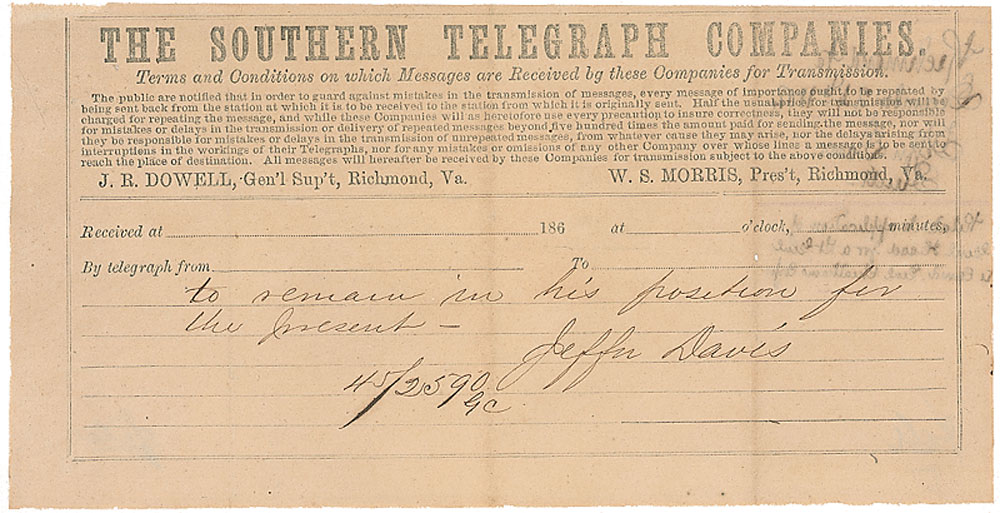 THE SOUTHERN TELEGRAPH COMPANIES.
Terms and Conditions on which Messages are Received by these Companies for Transmission.
The public are notified that in order to guard against mistakes in the transmission of messages, every message of importance ought to be repeated by
being sent back from the station at which it is to be received to the station from which it is originally sent. Half the usual price for transmission will be
charged for repeating the message, and while these Companies will as heretofore use every precaution to insure correctness, they will not be responsible
for mistakes or delays in the transmission or delivery of repeated messages beyond five hundred times the amount paid for sending the message, nor will
they be responsible for mistakes or delays in the transmission of unrepeated messages, from whatever cause they may arise, nor the delays arising from
interruptions in the workings of their Telegraphs, nor for any mistakes or omissions of any other Company over whose lines a message is to be sent to
reach the place of destination. All messages will hereafter be received by these Companies for transmission subject to the above conditions.
J. R. DOWELL, Gen'l Sup't, Richmond, Va. W. S. MORRIS, Pres't, Richmond, Va.
Received at 186 at o'clock, minutes,
By telegraph from To
to remain in his position for
the present —
Jeffn Davis
45/2590
GC